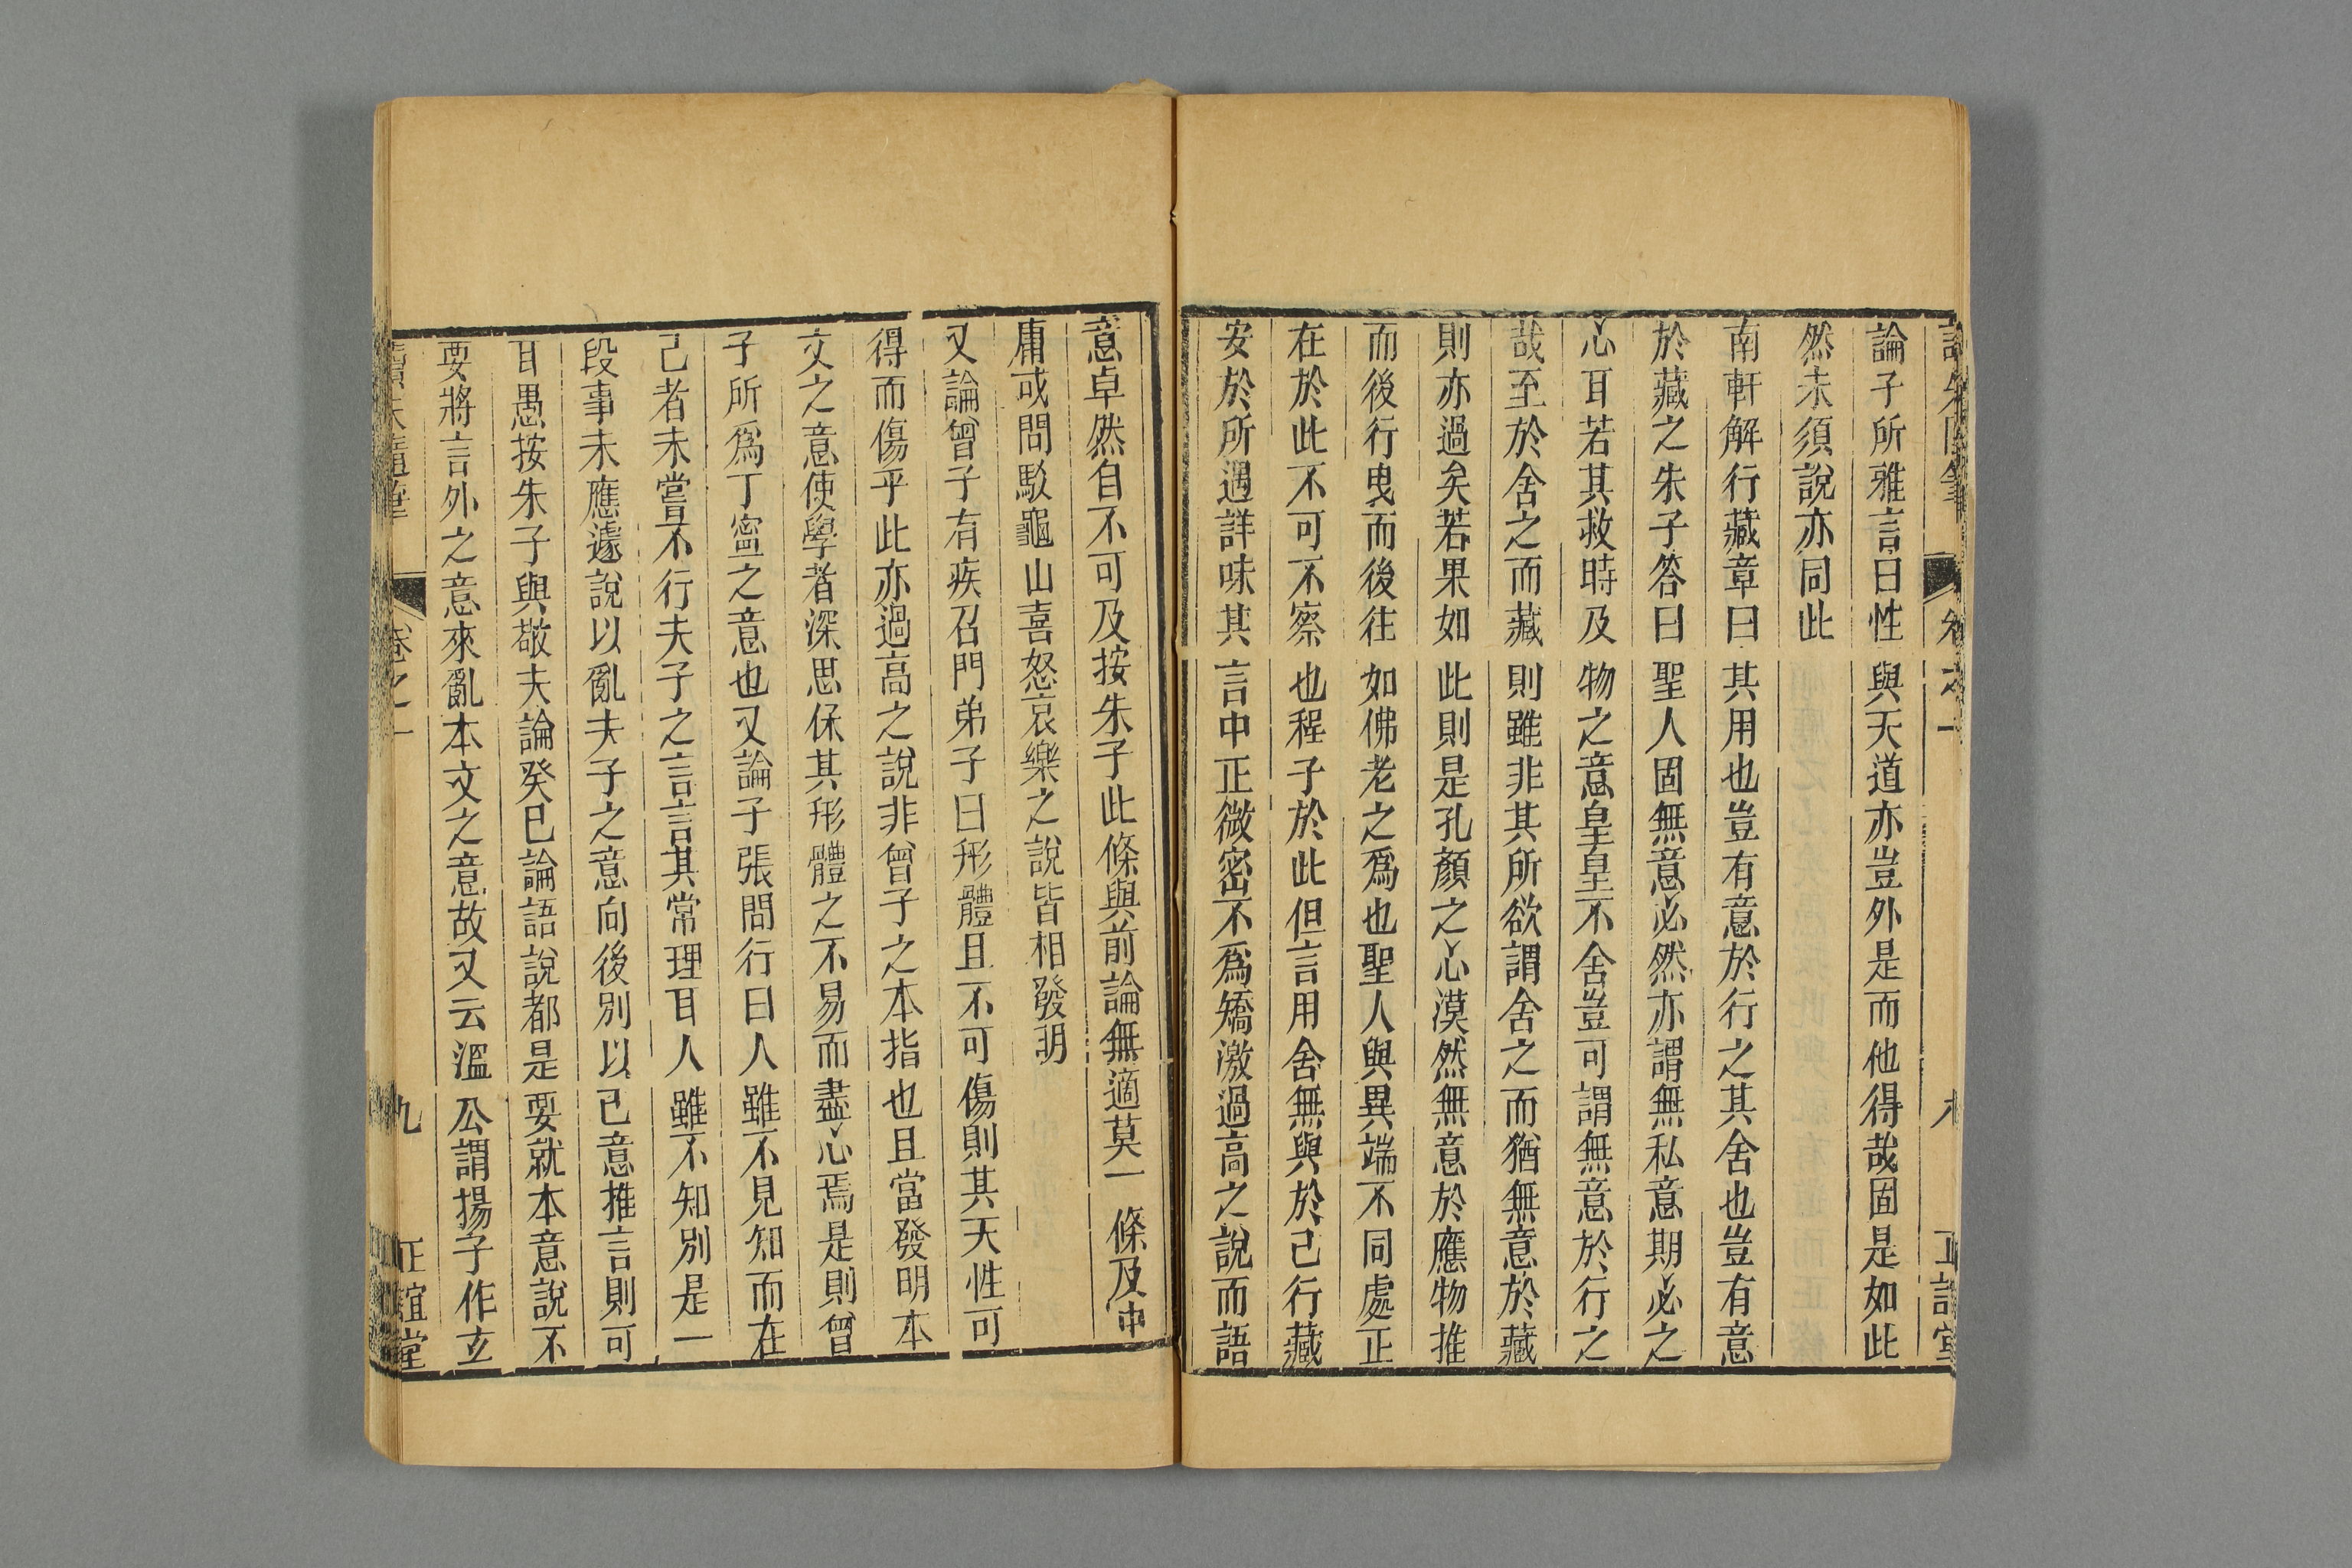 卷之一
論子所雅言曰性與天道亦豈外是而他得哉固是如此
然未須說亦同此
南軒解行藏章曰其用也豈有意於行之其舍也豈有意
於藏之朱子答曰聖人固無意必然亦謂無私意期必之
心耳若其救時及物之意皇皇不舍豈可謂無意於行之
哉至於舍之而藏則雖非其所欲謂舍之而猶無意於藏
則亦過矣若果如此則是孔顏之心漠然無意於應物推
而後行曳而後往如佛老之爲也聖人與異端不同處正
在於此不可不察也程子於此但言用舍無與於己行藏
安於所遇詳味其言中正微密不爲矯激過高之說而語
意卓然自不可及按朱子此條與前論無適莫一條及中
庸或問駁龜山喜怒哀樂之說皆相發明
又論曾子有疾召門弟子曰形體且不可傷則其天性可
得而傷乎此亦過高之說非曾子之本指也且當發明本
文之意使學者深思保其形體之不易而盡心焉是則曾
子所爲丁寧之意也又論子張問行曰人雖不見知而在
己者未嘗不行夫子之言言其常理耳人雖不知別是一
段事未應遽說以亂夫子之意向後別以己意推言則可
耳愚按朱子與敬夫論癸巳論語說都是要就本意說不
要將言外之意來亂本文之意故又云溫公謂揚子作玄
讀朱隨筆 卷之一 九 正誼堂